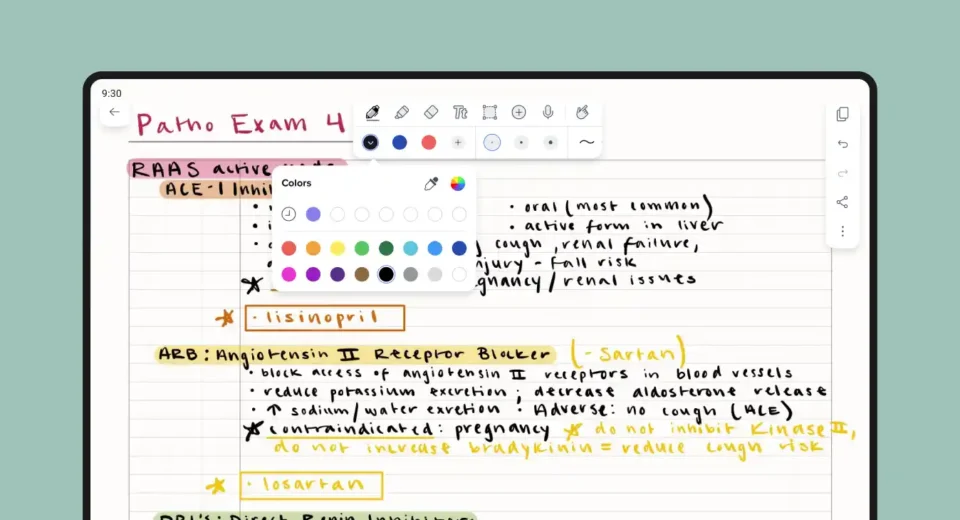 9:30
Patho Exam 4
Tt
RAAS active
ACE-1 Inhi
Colors
· oral (most common)
· active form in liver
cough, renal failure,
njury - fall risk
gnancy/renal issues
· lisinopril
ARB: Angiotensin II Receptor Blocker (-Sartan)
· block access of angiotensin II receptors in blood vessels
· reduce potassium excretion; decrease aldosterone release
· ↑ sodium/water exretion · Adverse: no cough (ACE)
contraindicated: pregnancy ☆ do not inhibit Kinase II,
do not increase bradykinin = reduce cough risk
· losartan
DRI's: Direct Renin Inhibitors